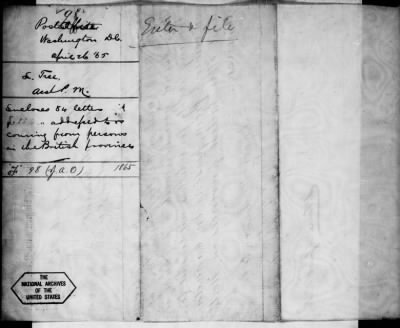 Post Office
Washington D.C.
April 26 '65
L. Tree
Asst P. M.
Encloses 84 letters
" addressed to or
coming from persons
in the British provinces
F 98 (J.A.O) 1865
Enter & file
THE
NATIONAL ARCHIVES
OF THE
UNITED STATES